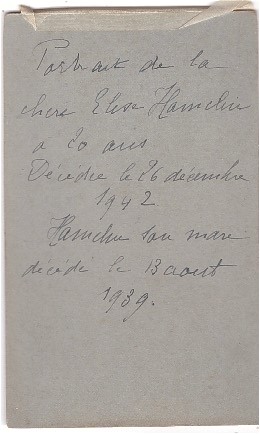 Portrait de la
chere Elise Hamelin
a 20 ans
Décédée le 26 décembre
1942
Hamelin son mari
décédé le 13 aout
1939.